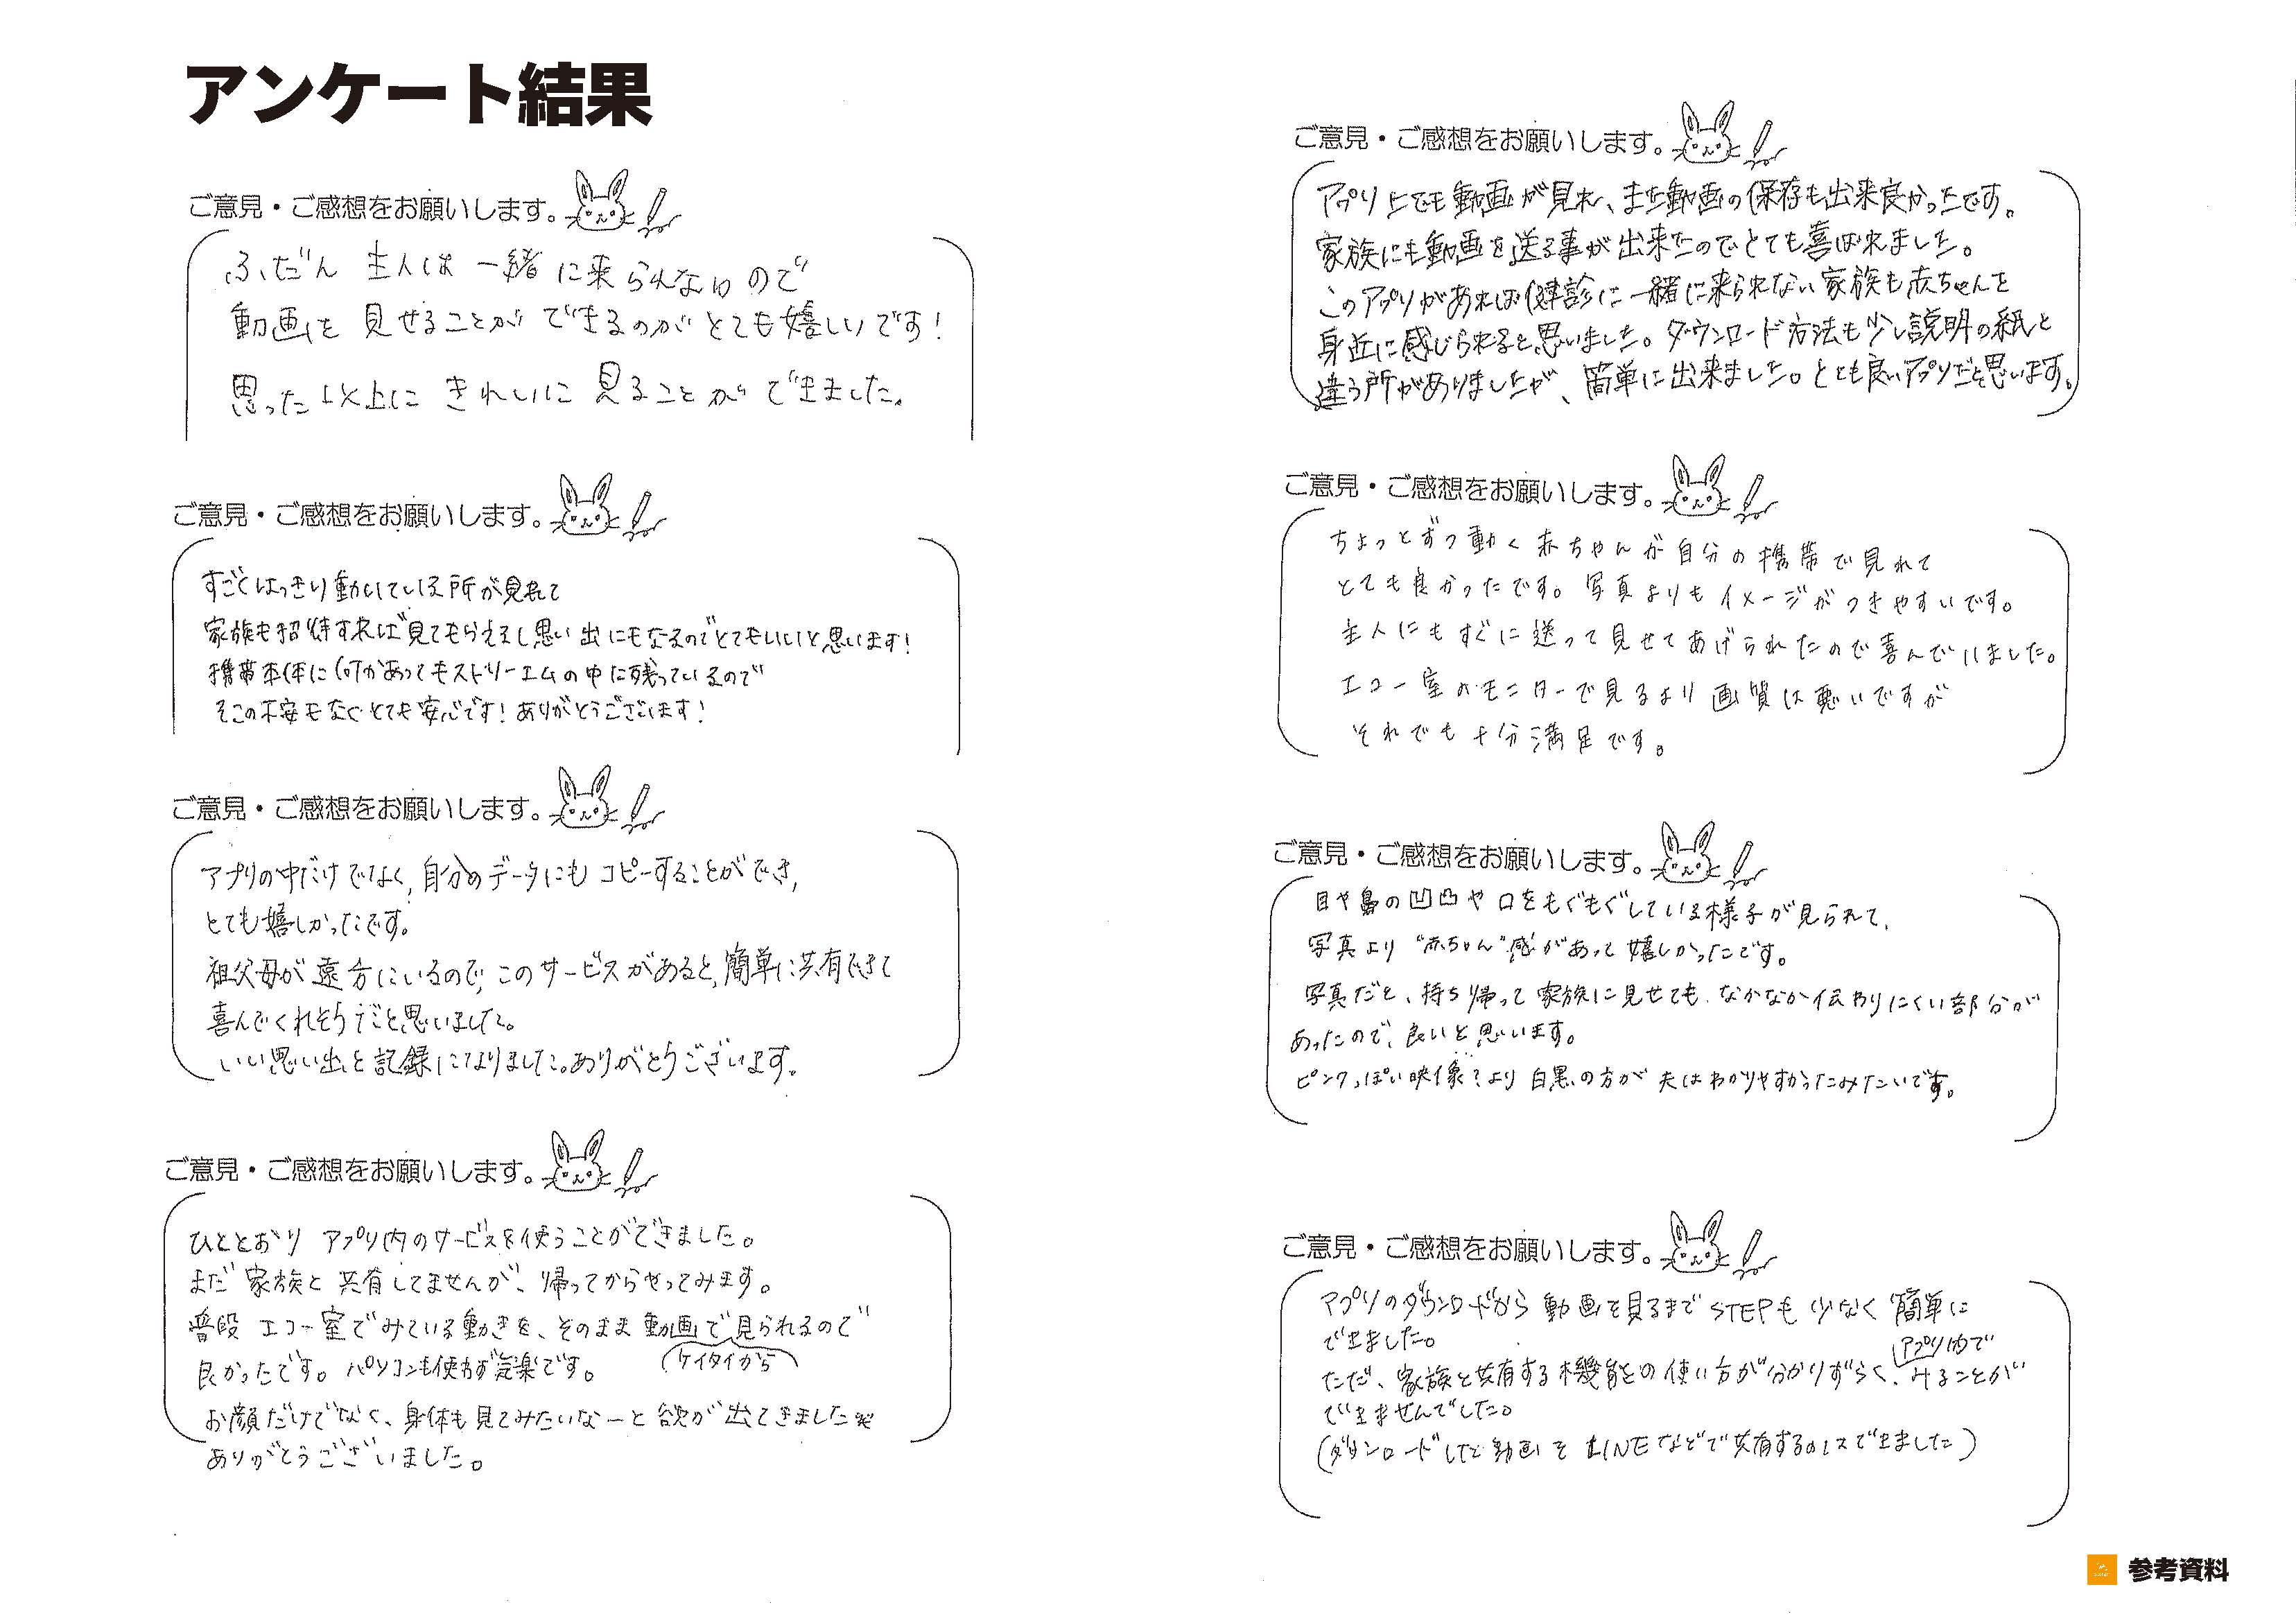 アンケート結果
ご意見・ご感想をお願いします。
ふだん 主人は 一緒に来られないので
動画を 見せることが できるのが とても嬉しいです!
思った以上に きれいに 見ることが できました。
ご意見・ご感想をお願いします。
すごくはっきり動いている所が見れて
家族も招待すれば見てもらえるし思い出にもなるのでとてもいいと思います!
携帯本体に何かあってもストリーエムの中に残っているので
そこの不安もなくとても安心です!ありがとうございます!
ご意見・ご感想をお願いします。
アプリの中だけでなく、自分のデータにもコピーすることができ、
とても嬉しかったです。
祖父母が遠方にいるので、このサービスがあると、簡単に共有できて
喜んでくれそうだと思いました。
いい思い出と記録になりました。ありがとうございます。
ご意見・ご感想をお願いします。
ひととおり アプリ内のサービスを使うことができました。
まだ 家族と 共有してませんが、帰ってからやってみます。
普段 エコー室でみている動きを、そのまま動画で見られるので
(ケイタイから)
良かったです。パソコンも使わず気楽です。
お顔だけでなく、身体も見てみたいなーと欲が出てきました
ありがとうございました。
ご意見・ご感想をお願いします。
アプリ上でも動画が見れ、また動画の保存も出来良かったです。
家族にも動画を送る事が出来たのでとても喜ばれました。
このアプリがあれば健診に一緒に来られない家族も赤ちゃんを
身近に感じられると思いました。ダウンロード方法も少し説明の紙と
違う所がありましたが、簡単に出来ました。とても良いアプリだと思います。
ご意見・ご感想をお願いします。
ちょっとずつ動く赤ちゃんが自分の携帯で見れて
とても良かったです。写真よりもイメージがつきやすいです。
主人にもすぐに送って見せてあげられたので喜んでいました。
エコー室のモニターで見るより画質は悪いですが
それでも十分満足です。
ご意見・ご感想をお願いします。
目や鼻の凹凸や口をもぐもぐしている様子が見られて、
写真より"赤ちゃん"感があって嬉しかったです。
写真だと、持ち帰って家族に見せても、なかなか伝わりにくい部分が
あったので、良いと思います。
ピンクっぽい映像?より白黒の方が夫はわかりやすかったみたいです。
ご意見・ご感想をお願いします。
アプリのダウンロードから動画を見るまでSTEPも少なく簡単に
できました。
アプリ内で
ただ、家族と共有する機能の使い方が分かりずらく、みることが
できませんでした。
(ダウンロードした動画をLINEなどで共有するのはできました)
参考資料